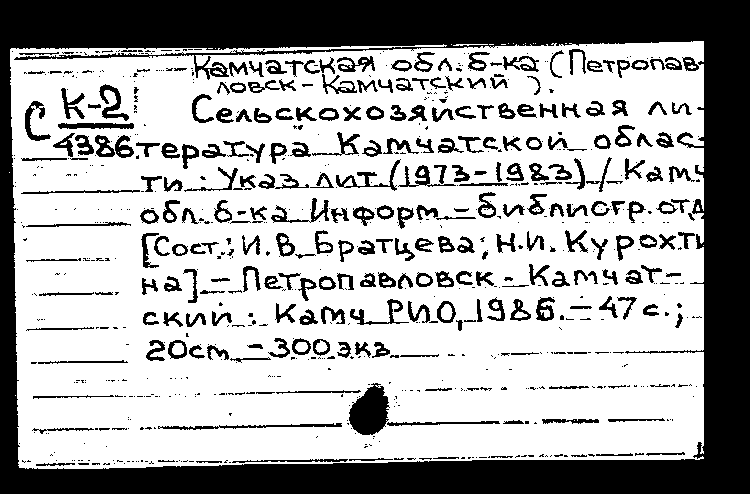 Камчатская обл. б-ка (Петропав-
ловск-Камчатский).
С К-2
4386
Сельскохозяйственная ли-
тература Камчатской облас-
ти : Указ. лит. (1973-1983) / Камч
обл. б-ка Информ.-библиогр. отд
[Сост.: И.В. Братцева; Н.И. Курохти
на]. - Петропавловск-Камчат-
ский : Камч РИО, 1986. - 47 с.;
20 cm - 300 экз